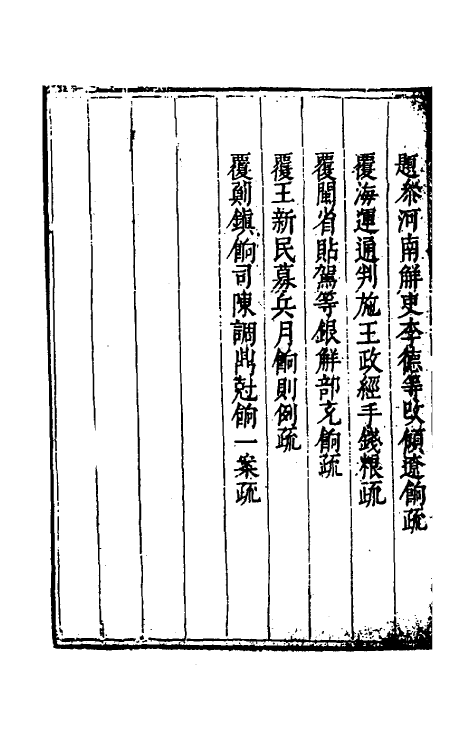 題叅河南解吏李德等改傾遼餉疏
覆海運通判施王政經手錢粮疏
覆閩省貼駕等銀解部充餉疏
覆王新民募兵月餉則例疏
覆薊鎮餉司陳調鼎尅餉一案疏